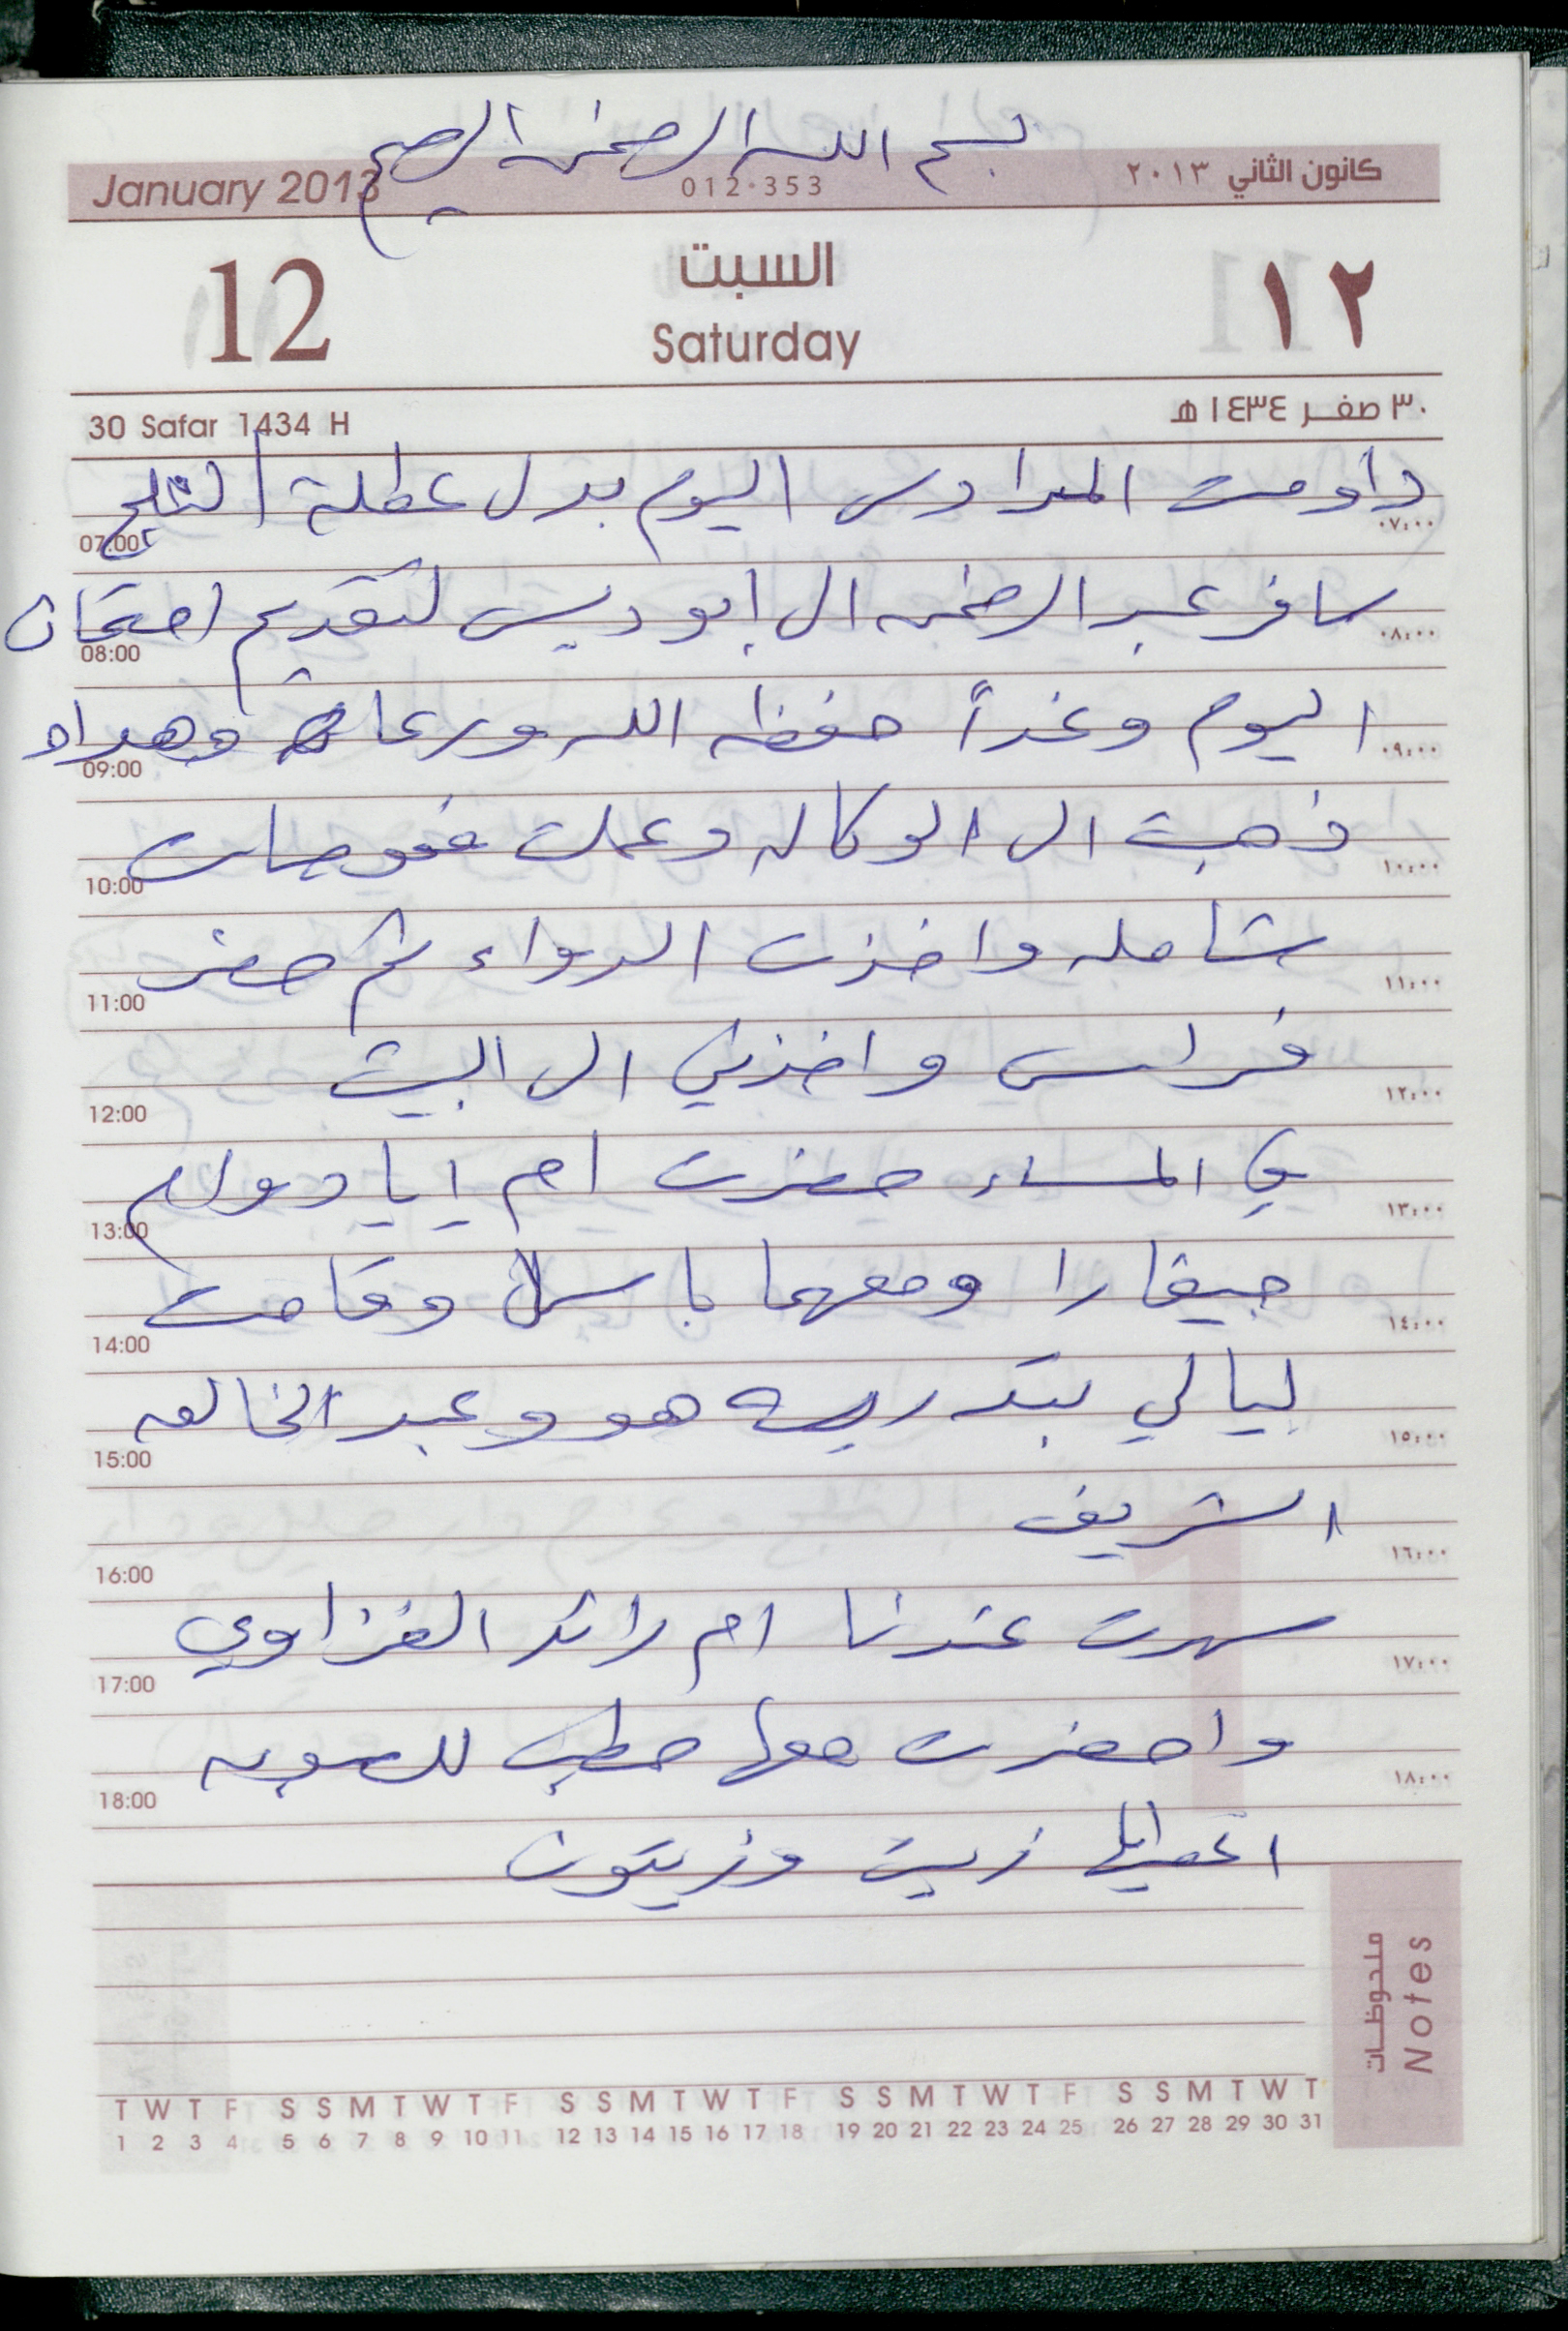 بسم الله الرحمن الرحيم
January 2013 012-353 كانون الثاني ٢٠١٣
12 السبت ١٢
Saturday
30 Safar 1434 H ٣٠ صفر ١٤٣٤ هـ
داومت المدارس اليوم بدل عطلة الثلج
07:00 ٠٧:٠٠
سافر عبد الرحمن الى ابو ديس لتقديم امتحان
08:00 ٠٨:٠٠
اليوم وغداً حفظه الله ورعاه وهداه
09:00 ٠٩:٠٠
ذهبت الى الوكاله وعملت فحوصات
10:00 ١٠:٠٠
شامله واخذت الدواء ثم حضر
11:00 ١١:٠٠
فراس واخذني الى البيت
12:00 ١٢:٠٠
في المساء حضرت ام اياد وام
13:00 ١٣:٠٠
جيفارا ومعهما باسل وقامت
14:00 ١٤:٠٠
ليالي بتدريسه هو وعبد الخالق
15:00 ١٥:٠٠
الشريف
16:00 ١٦:٠٠
سهرت عندنا ام رائد الغزاوي
17:00 ١٧:٠٠
واحضرت معها حطب للصوبه
18:00 ١٨:٠٠
اعطيناها زيت وزيتون
ملحوظات Notes
T W T F S S M T W T F S S M T W T F S S M T W T F S S M T W T
1 2 3 4 5 6 7 8 9 10 11 12 13 14 15 16 17 18 19 20 21 22 23 24 25 26 27 28 29 30 31